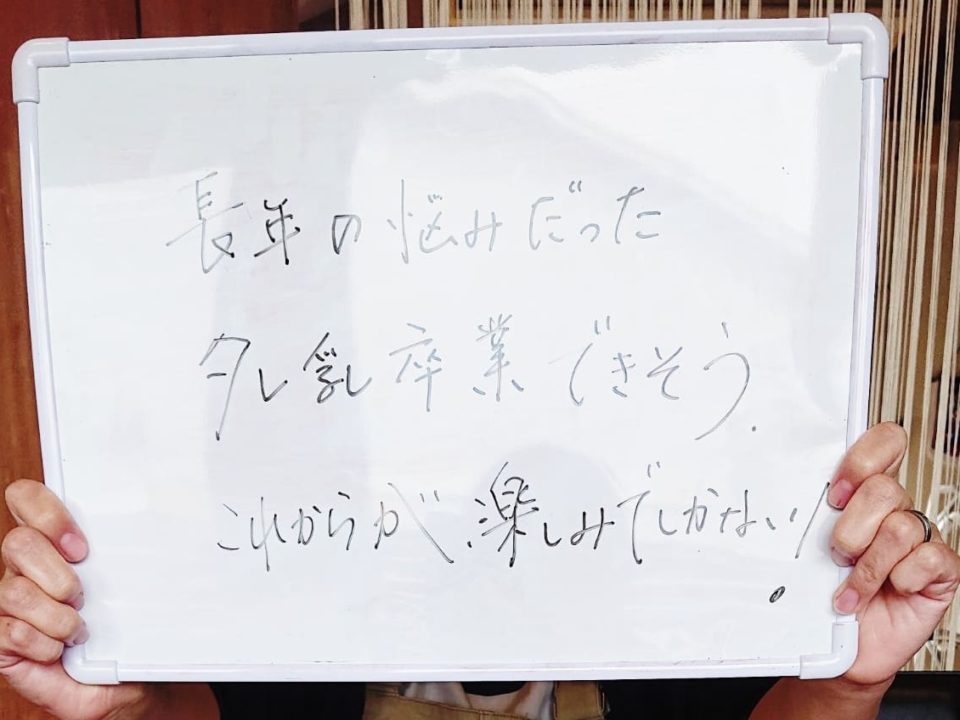 長年の悩みだった
タレ乳卒業できそう.
これからが楽しみでしかない!